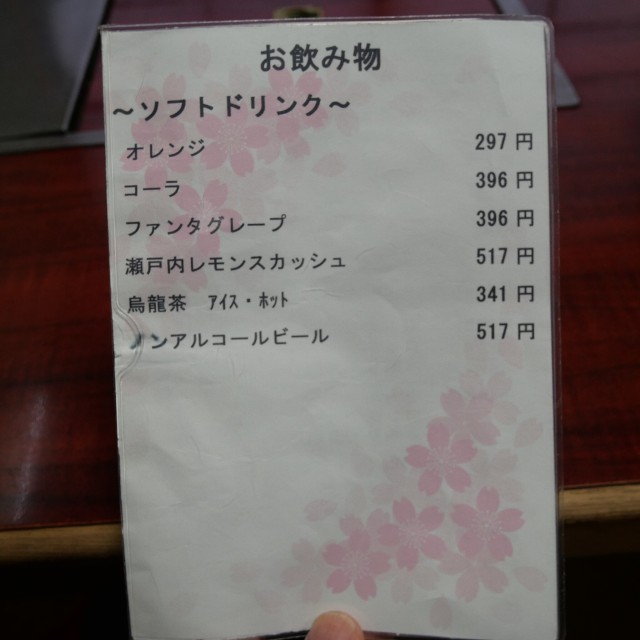 お飲み物
～ソフトドリンク～
オレンジ 297 円
コーラ 396 円
ファンタグレープ 396 円
瀬戸内レモンスカッシュ 517 円
烏龍茶　ｱｲｽ・ﾎｯﾄ 341 円
ノンアルコールビール 517 円